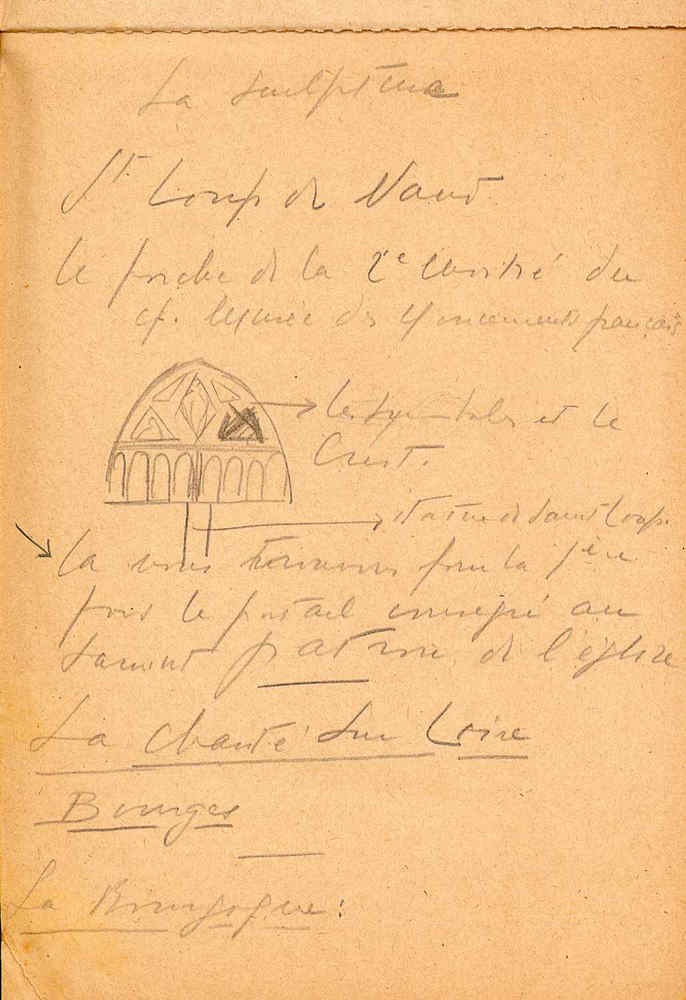 La sculpture
St Loup de Naud
le porche de la 2e moitié du
cf. Musée des Monuments français
les symboles et le
Christ.
statue de Saint Loup.
là nous trouvons pour la 1ère
fois le portail consacré au
saint patron de l'église
La Charité sur Loire
Bourges
La Bourgogne :